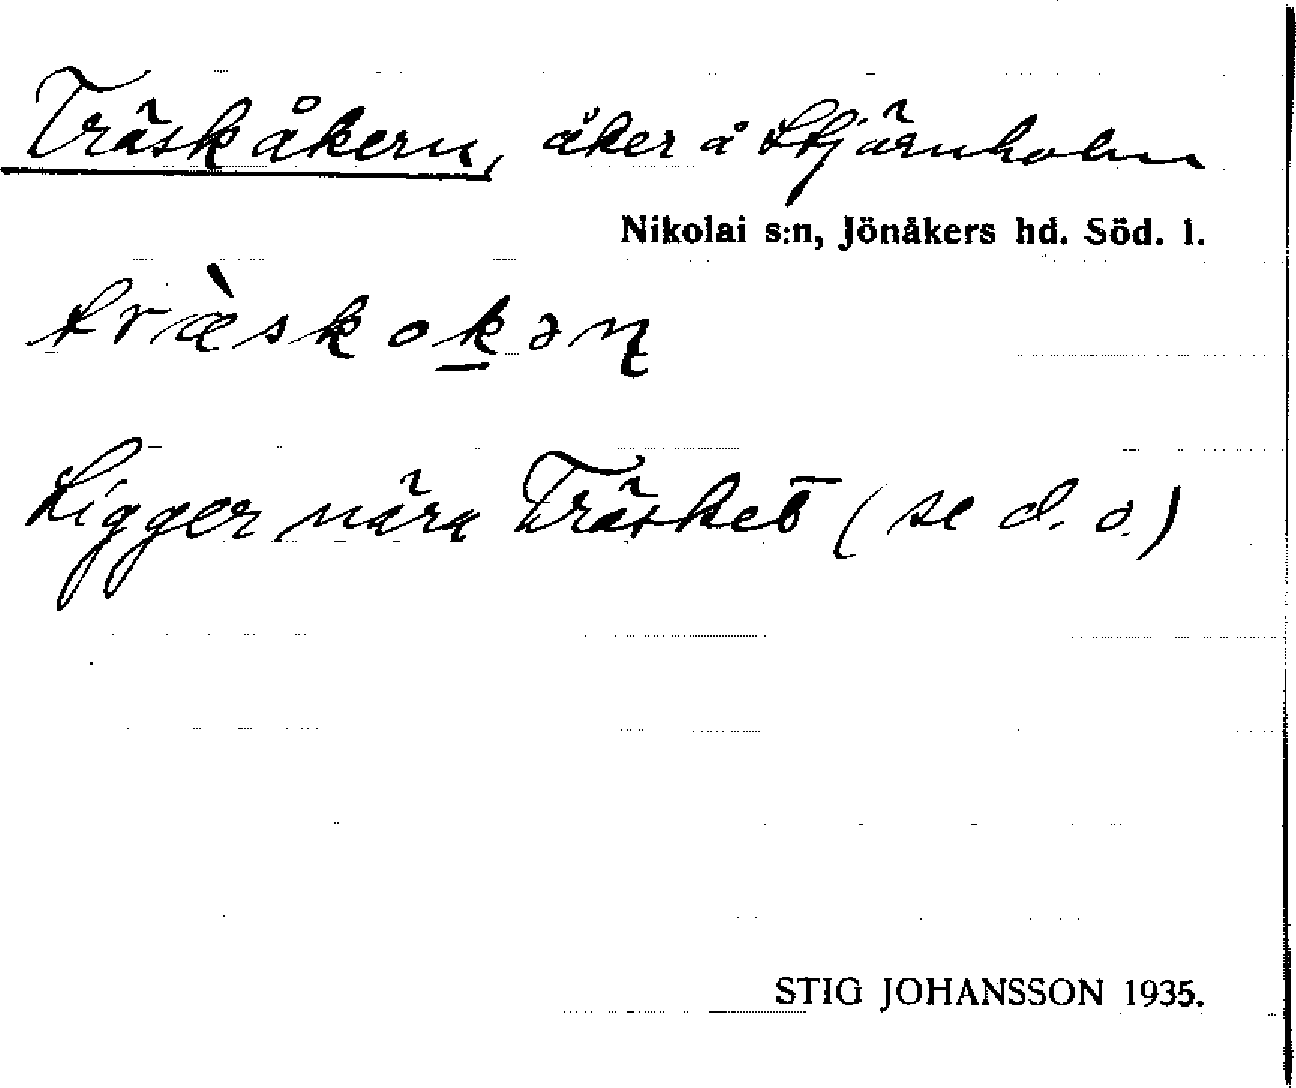 Träskåkern, åker å Stjärnholm
Nikolai s:n, Jönåkers hd. Söd. l.
træ̀skok̲əɳ
Ligger nära Träsket (se d. o.)
STIG JOHANSSON 1935.